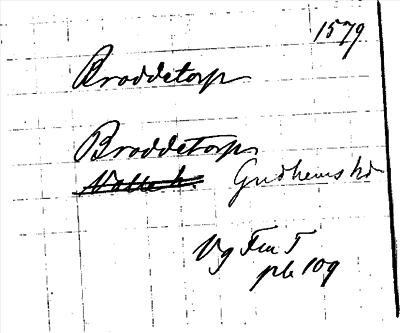 1579
Broddetorp
Broddetorp
Valle h. Gudhems hd
Vg Fm 5
ple 109